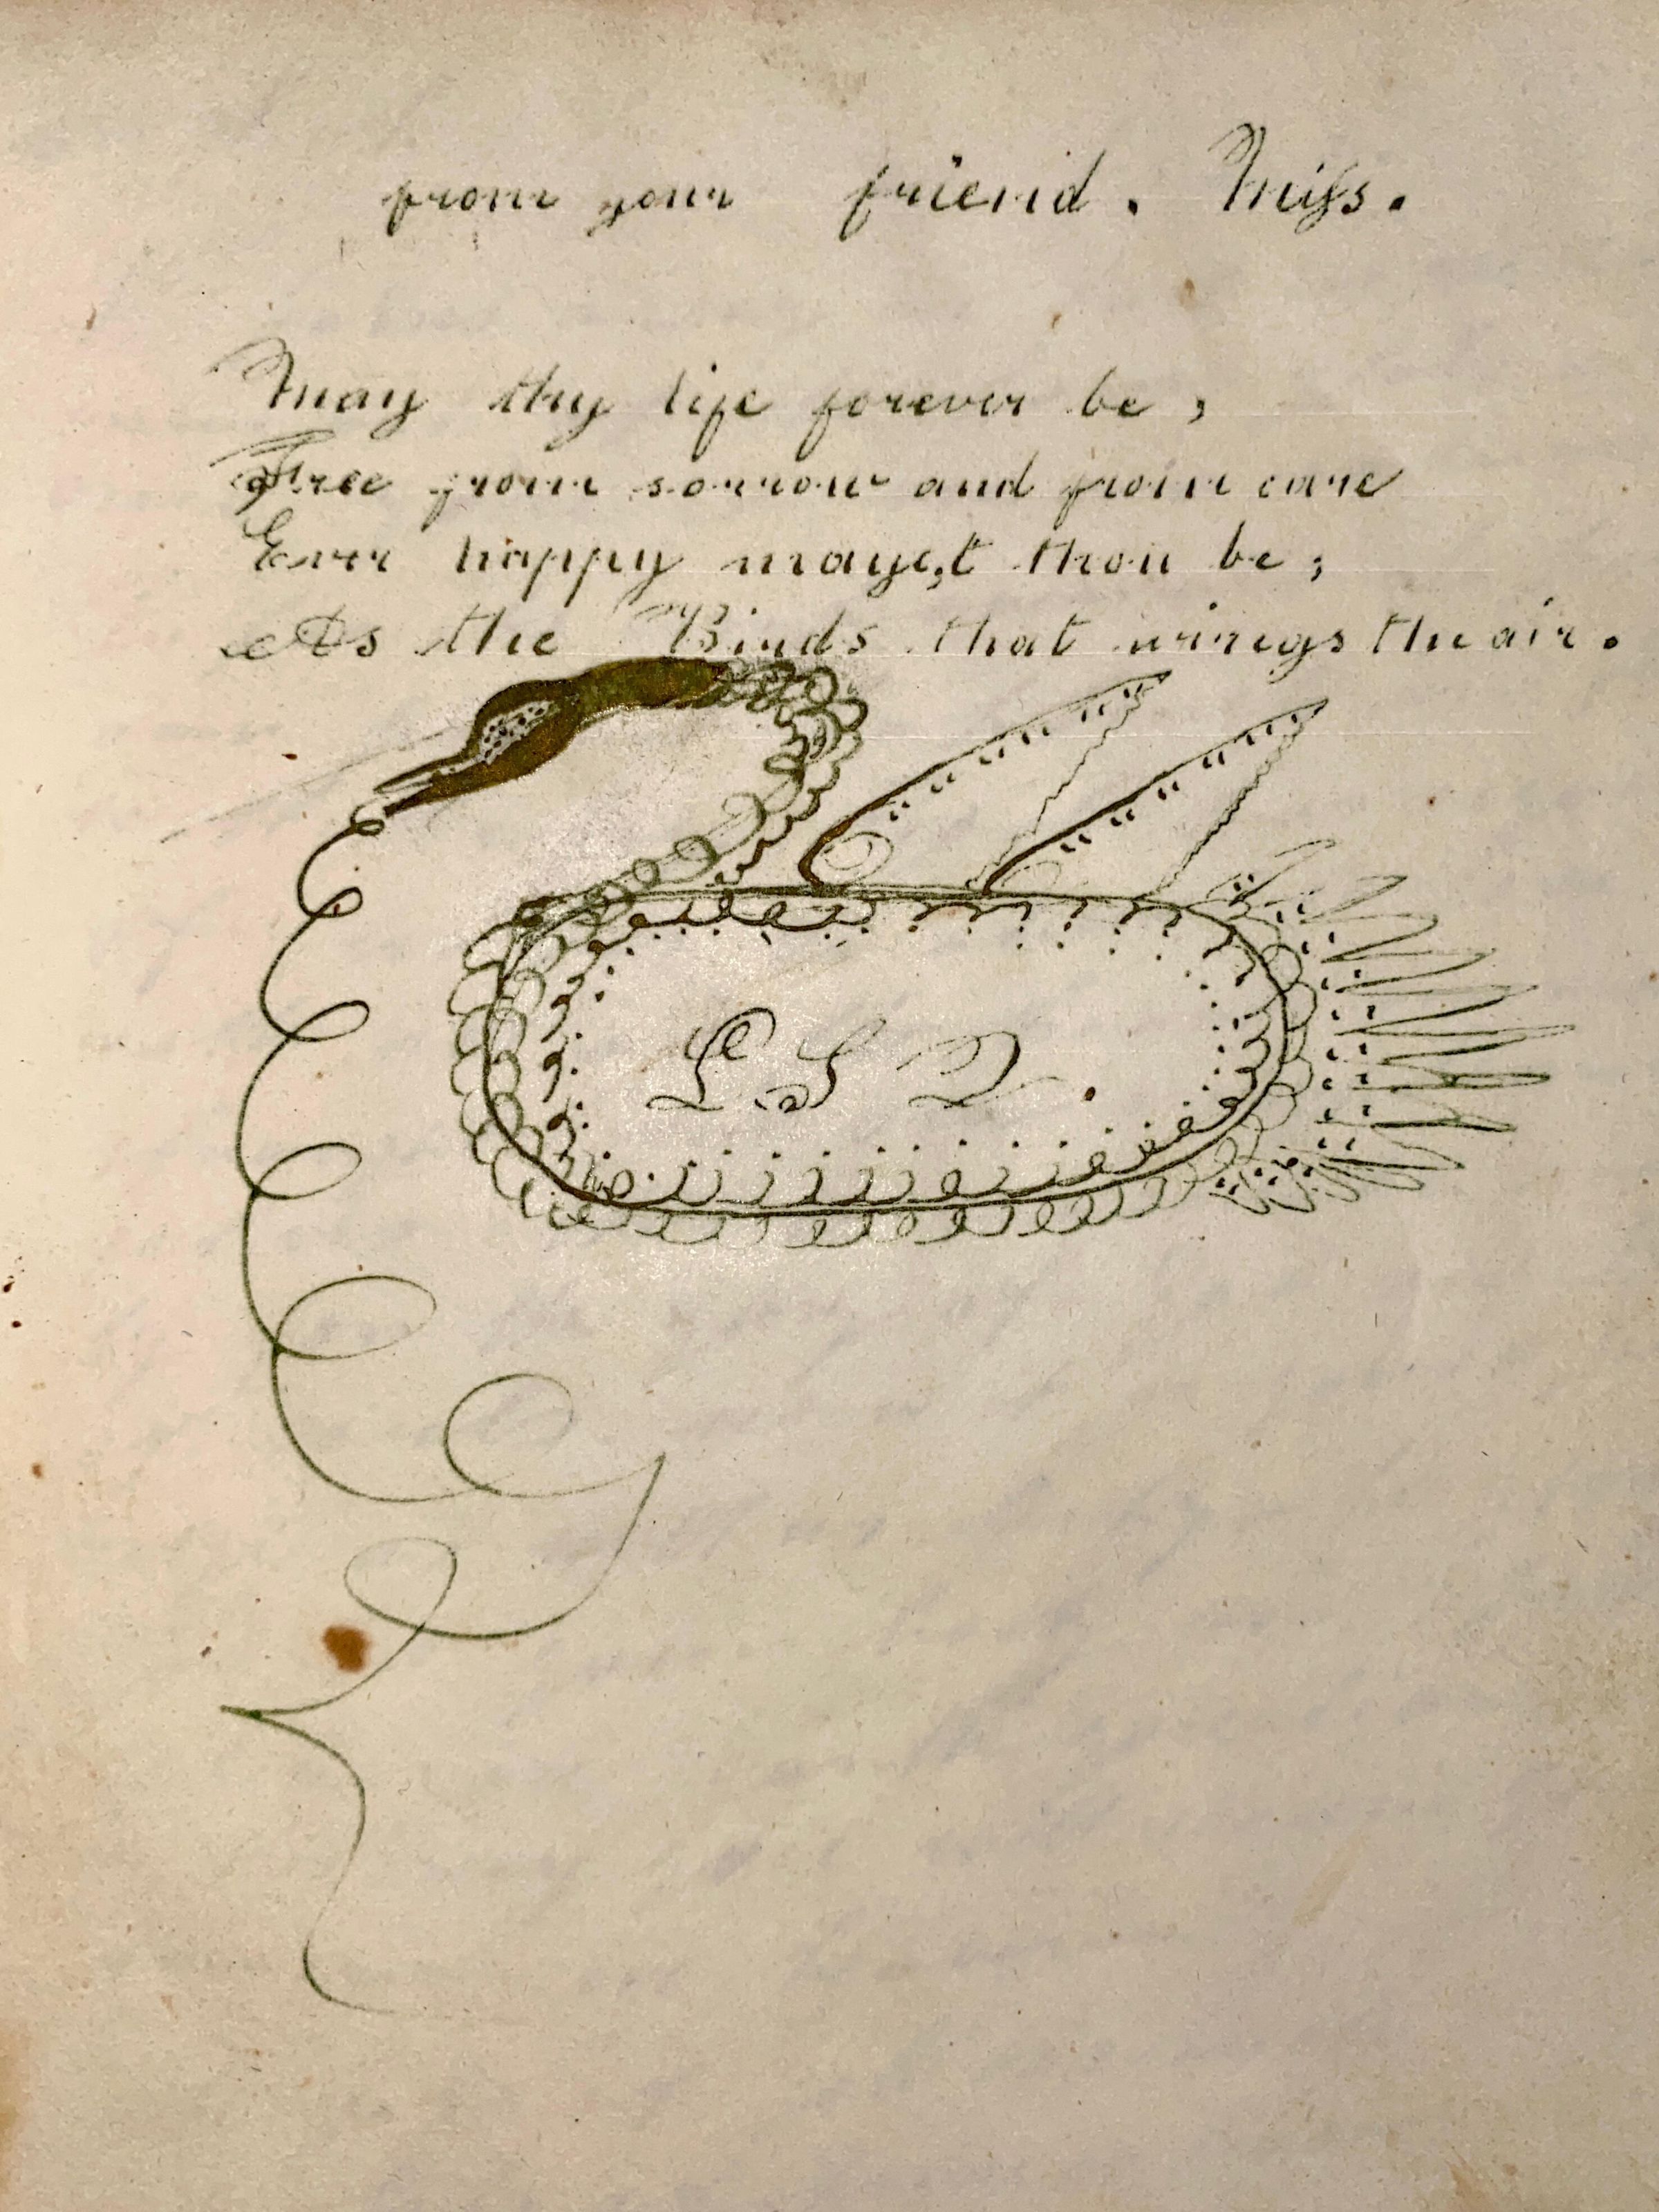 from your friend. Miss.
May thy life forever be,
Free from sorrow and from care
Ever happy mayest thou be;
As the Birds that wings the air.
L S D